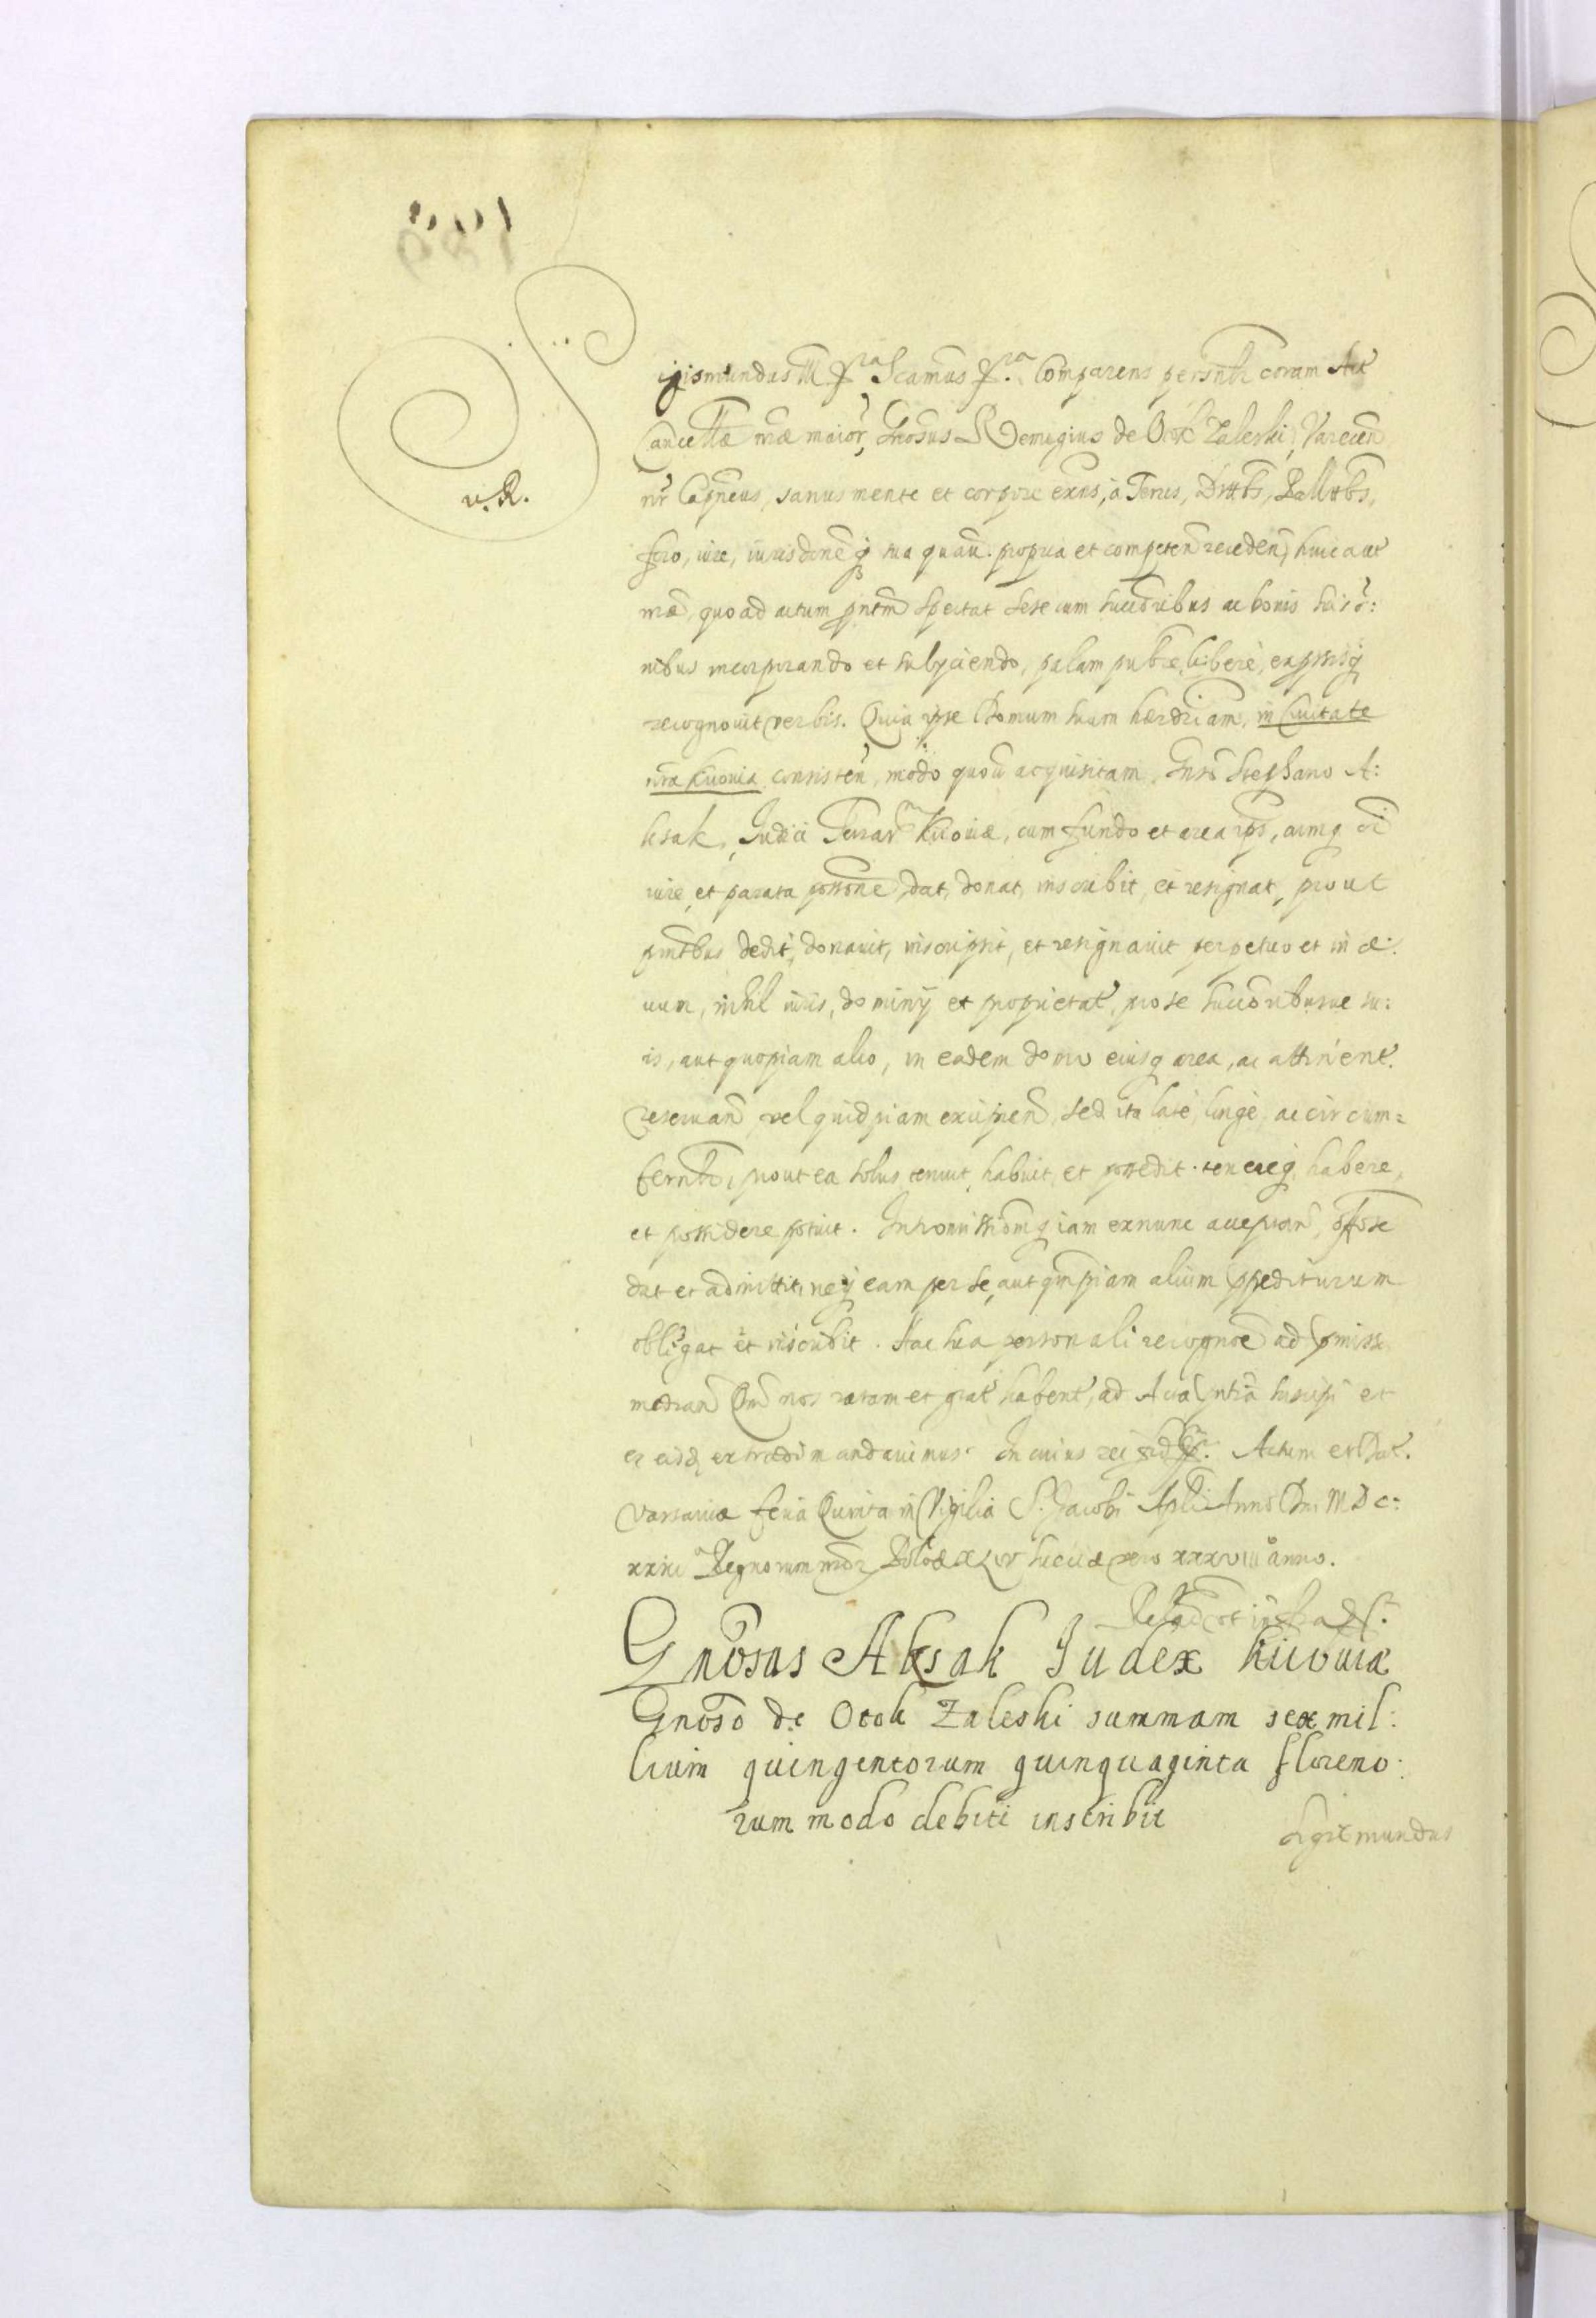 Sigismundus III &ra Scamus &ra. Comparens persnlr coram Act
Cancellæ nræ maior, Gnosus Remigius de Otok Zaleski,
nr Capneus, sanus mente et corpore exns, à Terris, Drttbs, Pallttbs,
foro, iure, iurisdone q sua quavi. propria et competen receden, huic aut
næ, quo ad actum pntm spectat sese cum succoribus ac bonis suis o:
nibus incorporando et subijciendo, palam publce, liberè, expressisq
recognovit verbis. Quia ipse Domum suam hærdriam, in Civitate
nra Kiiovia consisten, modo quovi acquisitam, Gnso Stephano A:
ksak, Iudici Terrar Kiioviæ, cum fundo et area ips, cumq oi
iure, et parata possone dat, donat, inscribit, et resignat, prout
pntibus dedit, donavit, inscripsit, et resignavit perpetuo et in æ:
uum, nihil iuris, dominij et proprietat, pro se succoribusue su:
is, aut quopiam alio, in eadem domo eiusq area, ac attinent.
reservan vel quidpiam excipien, sed ita latè, longè, ac circum=
fernlr, prout ea solus tenuit, habuit, et possedit. tenereq, habere,
et possidere potuit. Intromissionmq iam exnunc
dat et admittit, neq eam per se, aut qmpiam alium ppediturum
obligat et inscribit. Hac sua personali recogne ad pmissa
median Qm nos ratam et grat habent, ad Acta pntia suscipi et
ex eisd extradi mandavimus. In cuius rei fid &. Actum et Dat.
Varsaviæ feria Quinta in Vigilia S. Jacobi Apli Anno Dni MDC:
Regnorum nror Poloæ XXXV Sueciæ vero xxxviii anno.
Relatio ut infra &.
Gnosus Aksak Iudex Kiioviæ
Gnoso de Otok Zaleski summam sex mil:
lium quingentorum quinquaginta floreno:
rum modo debiti inscribit
Sigismundus
v. R.